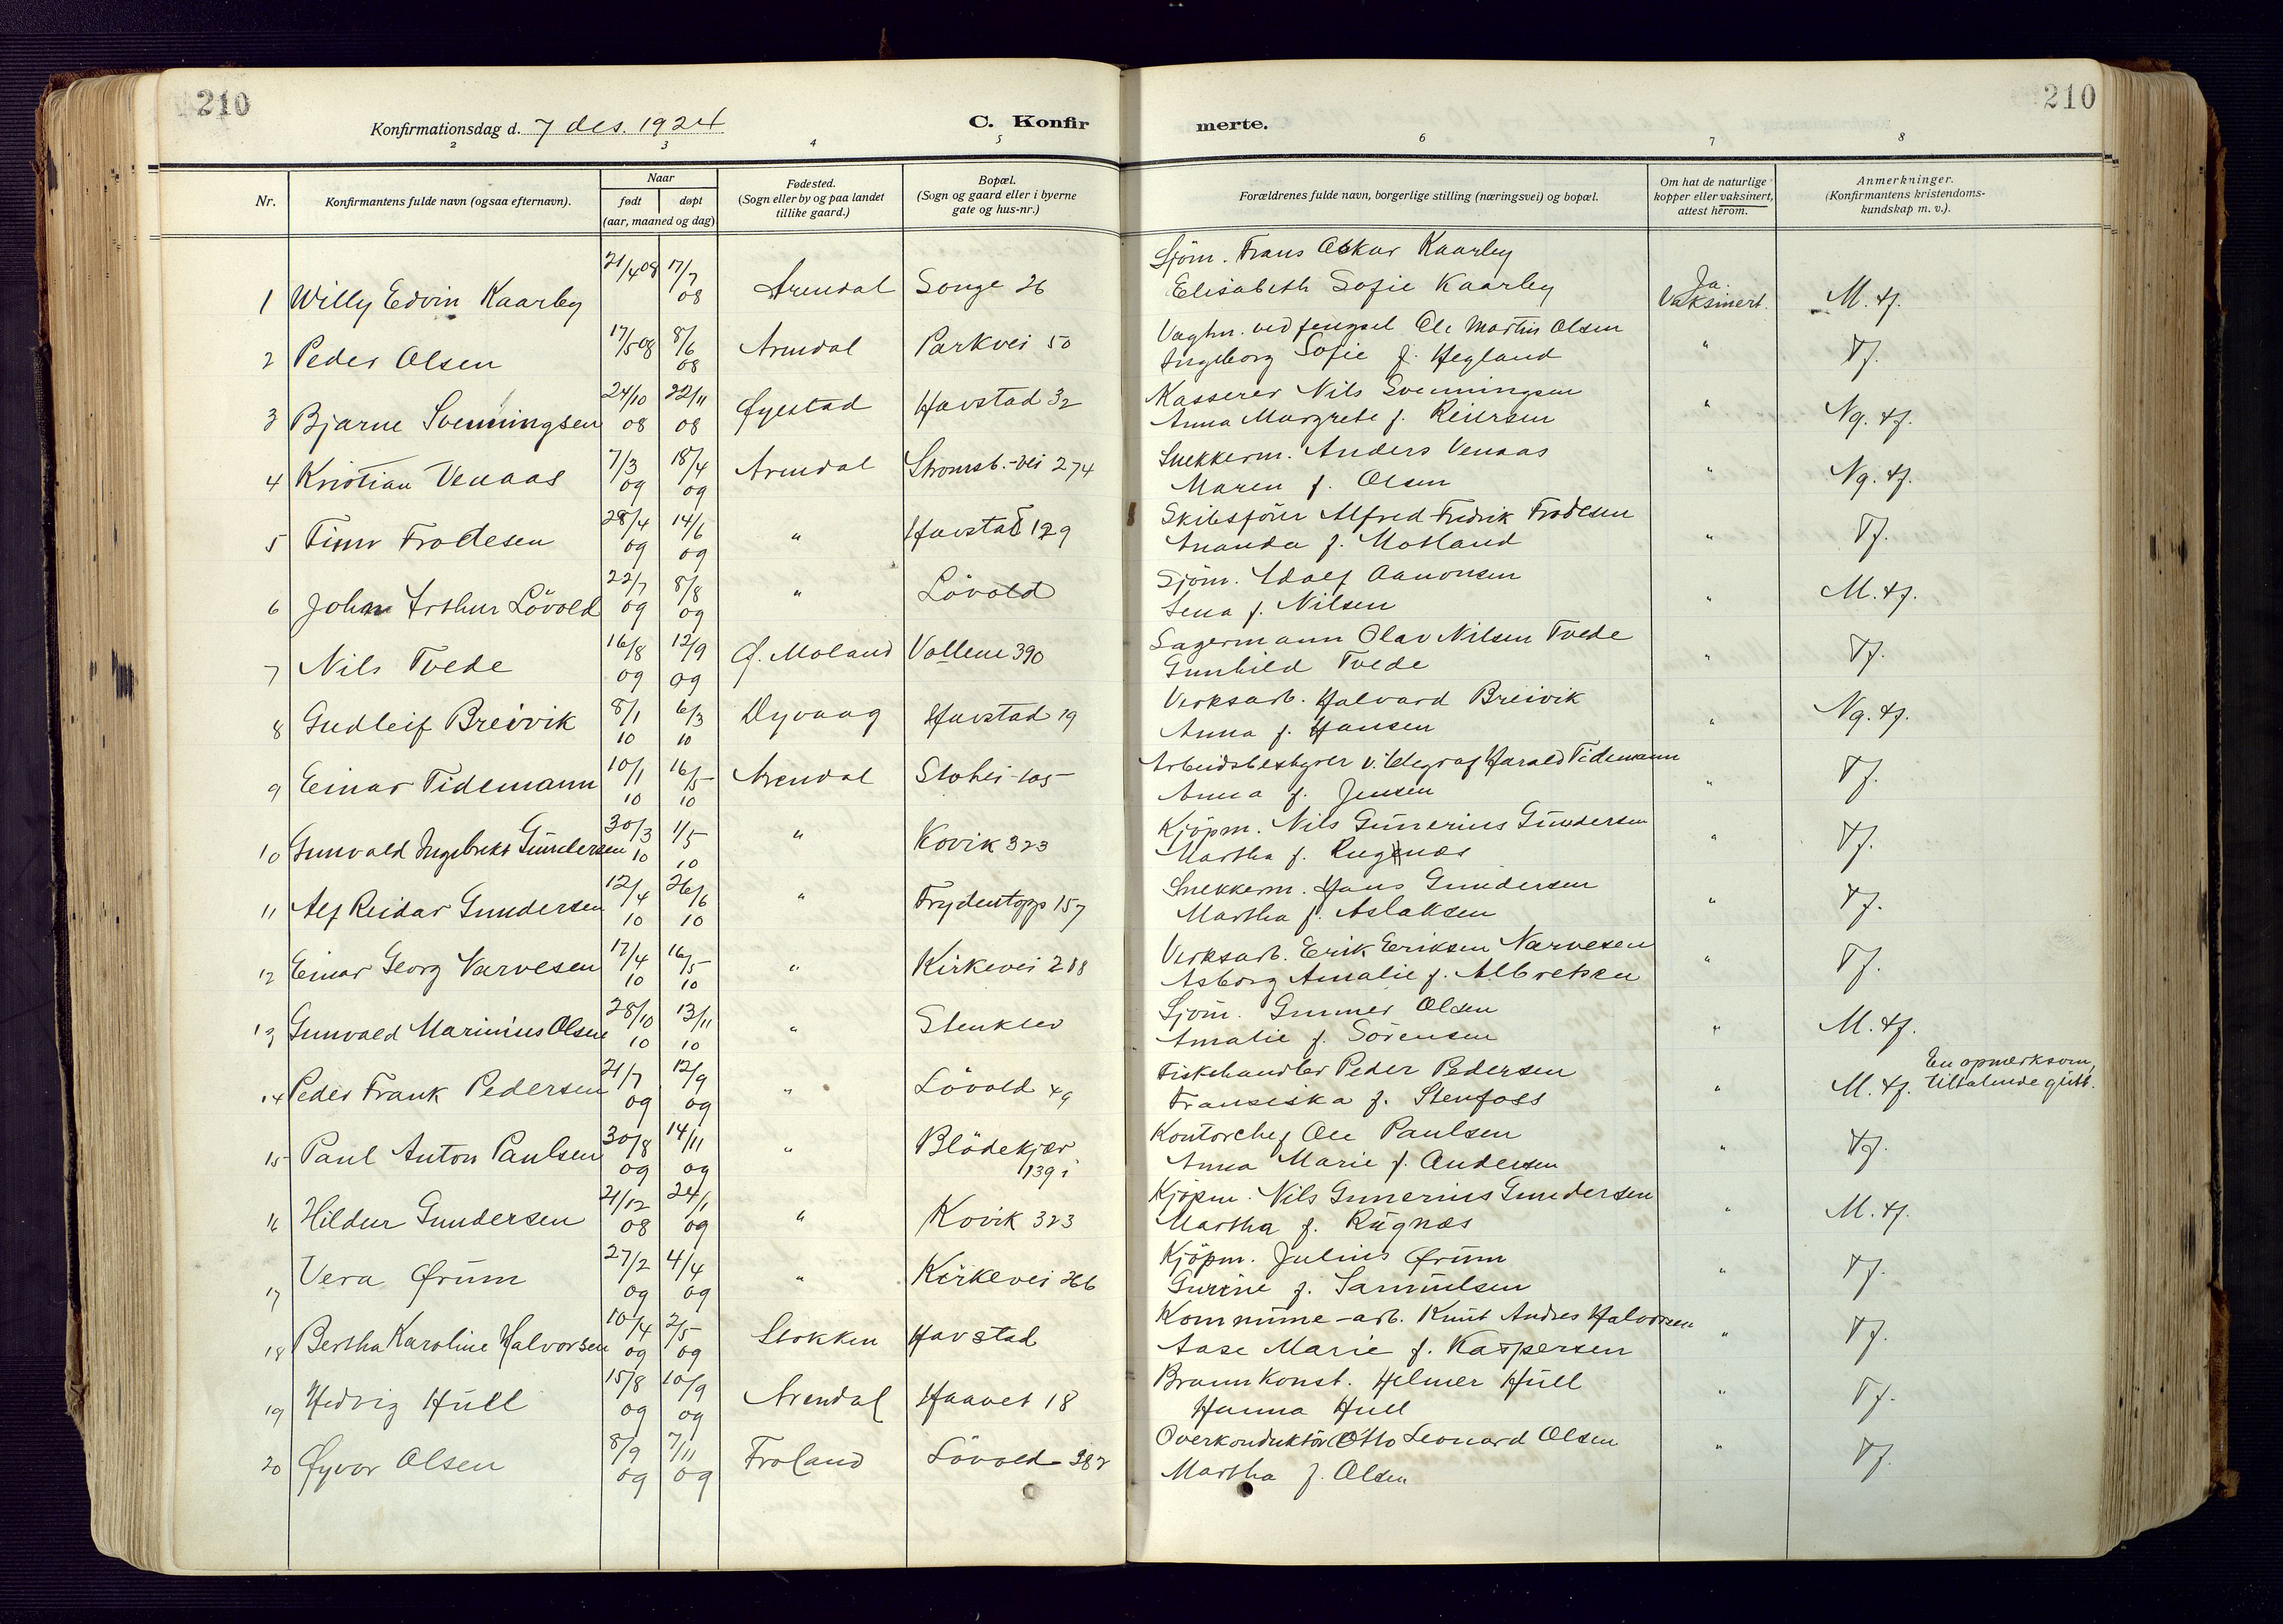 210
210
Konfirmationsdag d. 7 des. 1924
C. Konfir
merte.
2 3 4 5 6 7 8
Nr.
Konfirmantens fulde navn (ogsaa efternavn).
Naar
født døpt
(aar, maaned og dag)
Fødested.
(Sogn eller by og paa landet
tillike gaard.)
Bopæl.
(Sogn og gaard eller i byerne
gate og hus-nr.)
Forældrenes fulde navn, borgerlige stilling (næringsvei) og bopæl.
Om hat de naturlige
kopper eller vaksinert,
attest herom.
Anmerkninger.
(Konfirmantens kristendoms-
kundskap m. v.).
1 Willy Edvin Kaarby 21/4 08 17/7 08 Arendal Songe 26
Sjöm. Frans Oskar Kaarby
Elisabeth Sofie Kaarby
Ja. Vaksinert. M. tf.
2 Peder Olsen 17/5 08 8/6 08 Arendal Parkvei 50
Vagtm. ved fengsel Ole Martin Olsen
Ingeborg Sofie f. Hegland
" Tf.
3 Bjarne Svenningsen 24/10 08 22/11 08 Øyestad Havstad 32
Kasserer Nils Svenningsen
Anna Margrete f. Reiersen
" Ng. tf.
4 Kristian Venaas 7/3 09 18/4 09 Arendal Stromsb.-vei 274
Snekkerm. Anders Venaas
Maren f. Olsen
" Ng. tf.
5 Finn Frodesen 28/4 09 14/6 09 " Havstad 129
Skibsförer Alfred Fredrik Frodesen
Ananda f. Motland
" Tf.
6 John Arthur Lövold 22/7 09 8/8 09 " Lövold
Sjöm. Adolf Aanonsen
Lena f. Nilsen
" M. tf.
7 Nils Tvede 16/8 09 12/9 09 Ø. Moland Vollene 390
Sagermann Olav Nilsen Tvede
Gunhild Tvede
" Tf.
8 Gudleif Breivik 8/1 10 6/3 10 Dyvaag Havstad 19
Verksarb. Halvard Breivik
Anna f. Hansen
" Ng. tf.
9 Einar Tidemann 10/1 10 16/5 10 Arendal Stohei 105
Arbeidsbestyrer v. telegraf Harald Tidemann
Anna f. Jensen
" Tf.
10 Gunvald Ingebrekt Gundersen 30/3 10 1/5 10 " Kovik 323
Kjöpm. Nils Gunerius Gundersen
Martha f. Rugnæs
" Tf.
11 Alf Reidar Gundersen 12/4 10 26/6 10 " Frydentopp 157
Snekkerm. Hans Gundersen
Martha f. Aslaksen
" Tf.
12 Einar Georg Narvesen 17/4 10 16/5 10 " Kirkevei 218
Verksarb. Erik Eriksen Narvesen
Asborg Amalie f. Albretsen
" Tf.
13 Gunvald Marinius Olsen 28/10 10 13/11 10 " Stenklev
Sjöm. Gunner Olsen
Amalie f. Sörensen
" M. tf.
14 Peder Frank Pedersen 21/7 09 12/9 09 " Lövold 49
Fiskehandler Peder Pedersen
Fransiska f. Stenfoss
" M. tf. En opmerksom, tiltalende gutt.
15 Paul Anton Paulsen 30/8 09 14/11 09 " Blödekjær 139 i
Kontorchef Ole Paulsen
Anna Marie f. Andersen
" Tf.
16 Hildur Gundersen 21/12 08 24/1 09 " Kovik 323
Kjöpm. Nils Gunerius Gundersen
Martha f. Rugnæs
" M. tf.
17 Vera Ørum 27/2 09 4/4 09 " Kirkevei 266
Kjöpm. Julius Ørum
Gurine f. Samuelsen
" Tf.
18 Bertha Karoline Halvorsen 10/4 09 2/5 09 Stokken Havstad
Kommune-arb. Knut Andres Halvorsen
Aase Marie f. Kaspersen
" Tf.
19 Hedvig Hull 15/8 09 10/9 09 Arendal Haavet 18
Brannkonst. Helmer Hull
Hanna Hull
" Tf.
20 Øyvor Olsen 8/9 09 7/11 09 Froland Lövold 382
Overkonduktör Otto Leonard Olsen
Martha f. Olsen
" Tf.